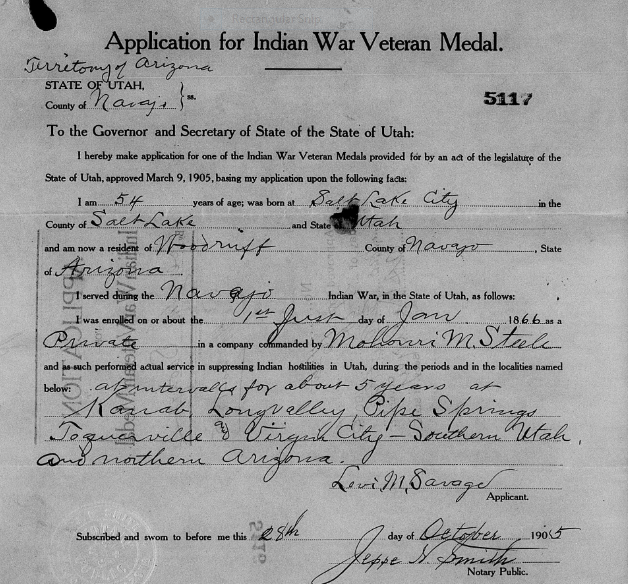 Application for Indian War Veteran Medal.
Territory of Arizona
STATE OF UTAH,
County of Navajo } ss.
5117
To the Governor and Secretary of State of the State of Utah:
I hereby make application for one of the Indian War Veteran Medals provided for by an act of the legislature of the
State of Utah, approved March 9, 1905, basing my application upon the following facts:
I am 54 years of age; was born at Salt Lake City in the
County of Salt Lake and State Utah
and am now a resident of Woodruff County of Navajo, State
of Arizona
I served during the Navajo Indian War, in the State of Utah, as follows:
I was enrolled on or about the 1st day of Jan 1866 as a
Private in a company commanded by M. Steele
and as such performed actual service in suppressing Indian hostilities in Utah, during the periods and in the localities named
below: at intervalls for about 5 years at
Kanab, Longvalley, Pipe Springs
Toquerville & Virgin City - Southern Utah,
and northern Arizona.
Levi M. Savage
Applicant.
Subscribed and sworn to before me this 28th day of October 1905
Smith
Notary Public.